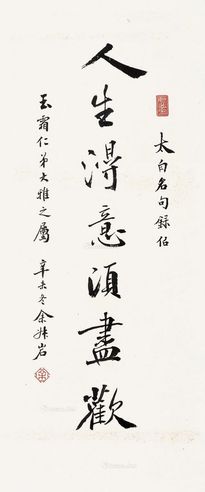 太白名句錄佔
人生得意須盡歡
玉霜仁弟大雅之屬 辛未冬余叔岩